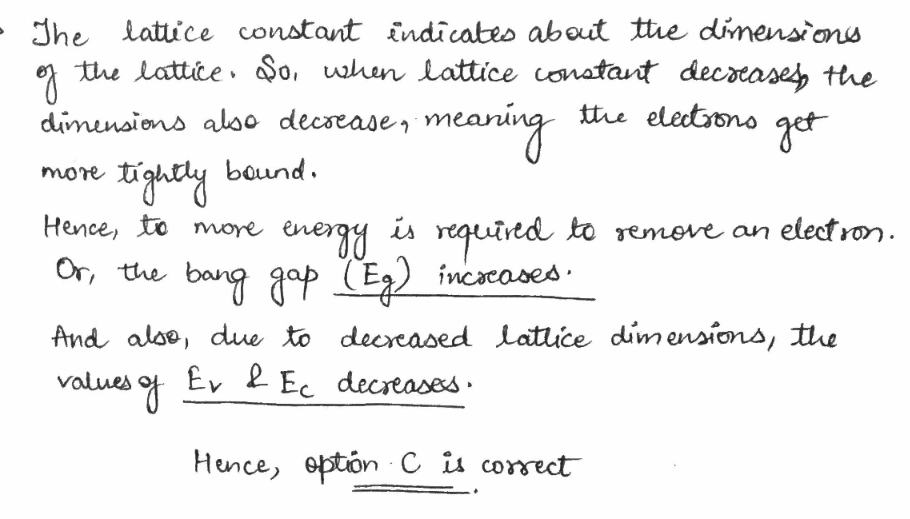 The lattice constant indicates about the dimensions
of the lattice. So, when lattice constant decreases, the
dimensions also decrease, meaning the electrons get
more tightly bound.
Hence, to more energy is required to remove an electron.
Or, the bang gap (Eg) increases.
And also, due to decreased lattice dimensions, the
values of Ev & Ec decreases.
Hence, option C is correct.